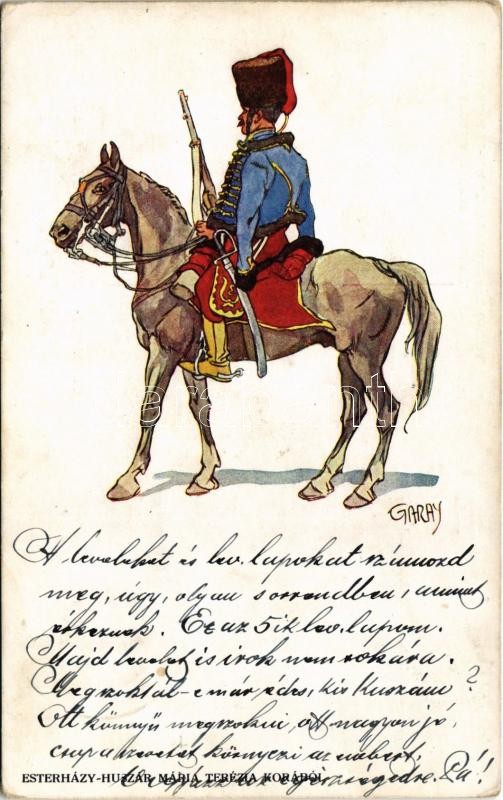 GARAY
A leveleket és lev. lapokat számozd
meg, úgy, olyan sorrendben, amint
érkeznek. Ez az 5ik lev. lapom.
Majd levelet is irok nem sokára.
Megszoktál-e már édes, kis
Ott könnyű megszokni, ott nagyon jó,
csupa szeretet környezi az embert,
ESTERHÁZY-HUSZÁR MÁRIA TERÉZIA KORÁBÓL
Pá!